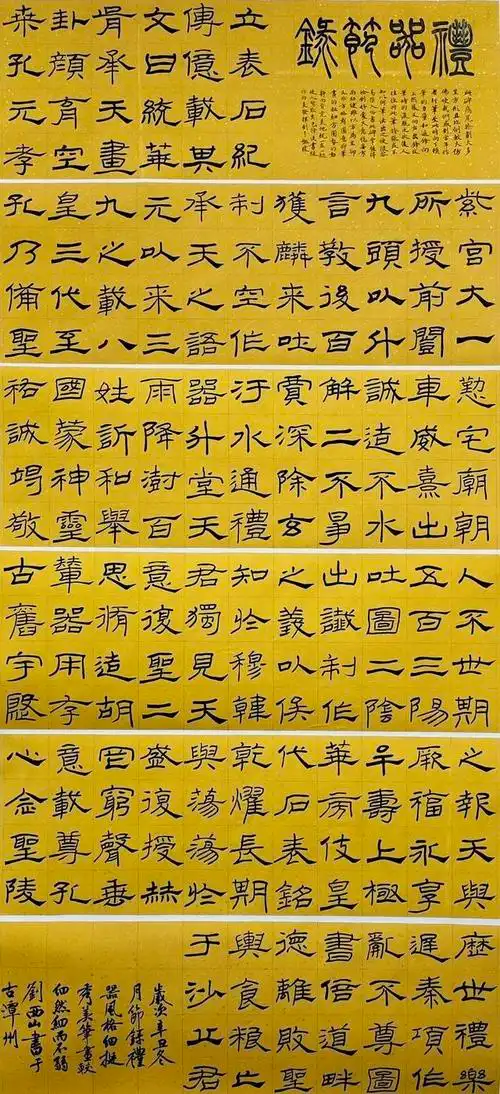 禮器節錄
立表石紀
傳億載其
文曰統華
胥承天畫
卦顏育空
桒孔元孝
紫宮大一
所授前闓
九頭以升
言教後百
獲麟來吐
制不空作
承天之語
元以来三
九之載八
皇三代至
孔乃備聖
愸宅廟朝
車威熹出
誠造不水
解二不爭
賈深除玄
汙水通禮
器升堂天
雨降澍百
姓訢和舉
國蒙神靈
祐誠竭敬
人不世期
五百三陽
吐圖二陰
出讖制作
之義以俟
知於穆韓
君獨見天
意復聖二
思脩造胡
輦器用存
古舊宇慇
之報天與
厥福永享
牟壽上極
華胥伎皇
代石表銘
乾燿長期
與蕩蕩於
盛復授赫
罔窮聲垂
意載尊孔
心念聖陵
歷世禮樂
遲秦項作
亂不尊圖
書倍道畔
德離敗聖
輿食糧亡
于沙丘君
歲次辛丑冬
月節錄禮
器風格細挺
秀美筆畫較
細然勁而不弱
劉西山書于
古潭州